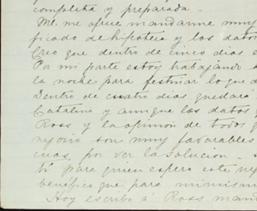 completa y preparada.
Me me ofrece mandarme muy
ficado de hipoteca y los datos
Creo que dentro de cinco dias e
Por mi parte estoy trabajando
la noche para festinar lo que d
Dentro de cuatro dias quedara
Catalina y aunque los datos
Ross y la opinion de todos
negocio son muy favorables
cuas, por ver la solucion.
bi para quien espero este ne
benefico que para mi mism
Hoy escribo á Ross man